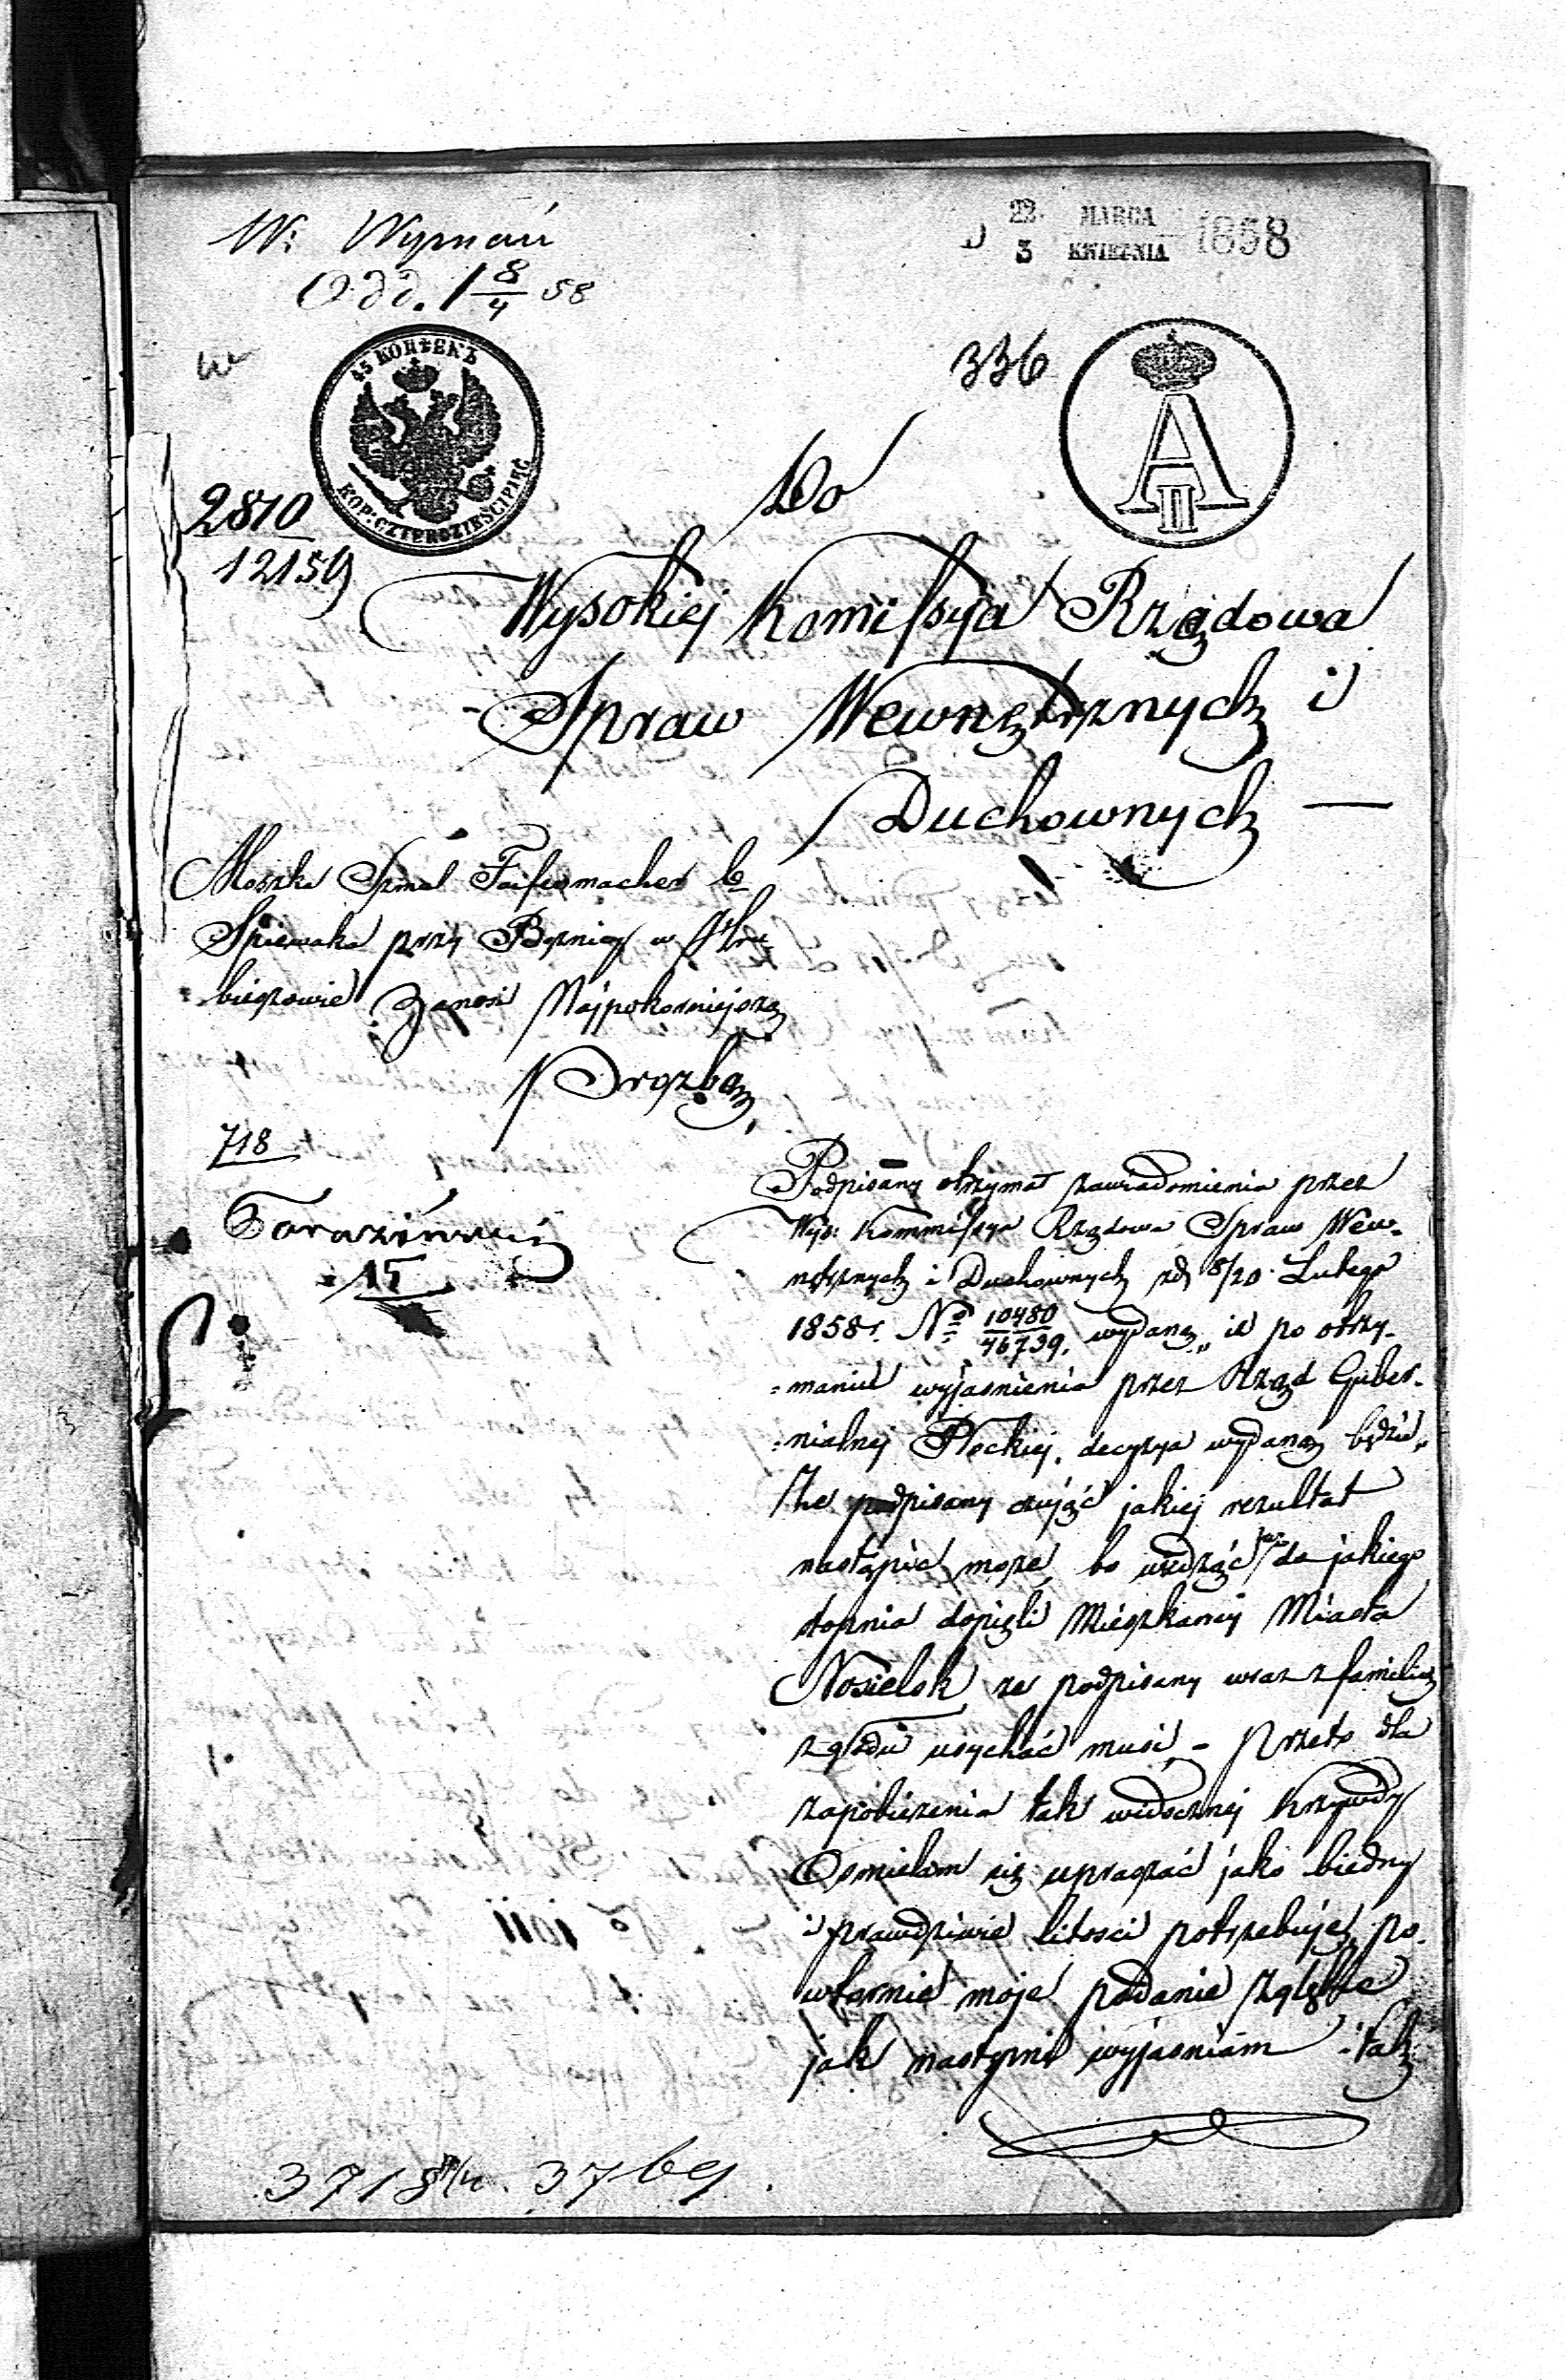 W: Wyznań
Odd. 1 8/4 58
D 22 MARCA / 3 KWIETNIA 1858
336
45 КОПѢЕКЪ
KOP. CZTERDZIEŚCI PIĘĆ
A II
2810
12159
Do
Wysokiej Komissyia Rządowa
Spraw Wewnętrznych i
Duchownych —
Moszka Szmul Faifermacher b
Spiewaka przy Bożnicy w Hru-
bieszowie Zanosi Najpokorniejszą
Proźbą
718
15
Podpisany otrzymał zawiadomienia przez
Wys: Kommissya Rządowa Spraw Wew-
nętrznych i Duchownych zd 8/20 Lutego
1858 r. No 10480/46739. wydaną „ iż po otrzy-
=maniu wyjasnienia przez Rząd Guber-
=nialnej Płockiej. decyzya wydaną będzie„
Ze podpisany czując jakiej rezultat
nastąpić może, bo widząc do jakiego
stopnia dopięli Mieszkancy Miasta
Nosielsk ze podpisany wraz z familią
z głodu usychać musi, - przeto dla
zapobieżenia tak widocznej Krzywdy
Osmielam się upraszać jako biedny
i prawdziwie litości potrzebuję, po-
wtornie moje podanie zgłębie
jak nastepnie wyjasniam i tak
3718 8/4. 3769.